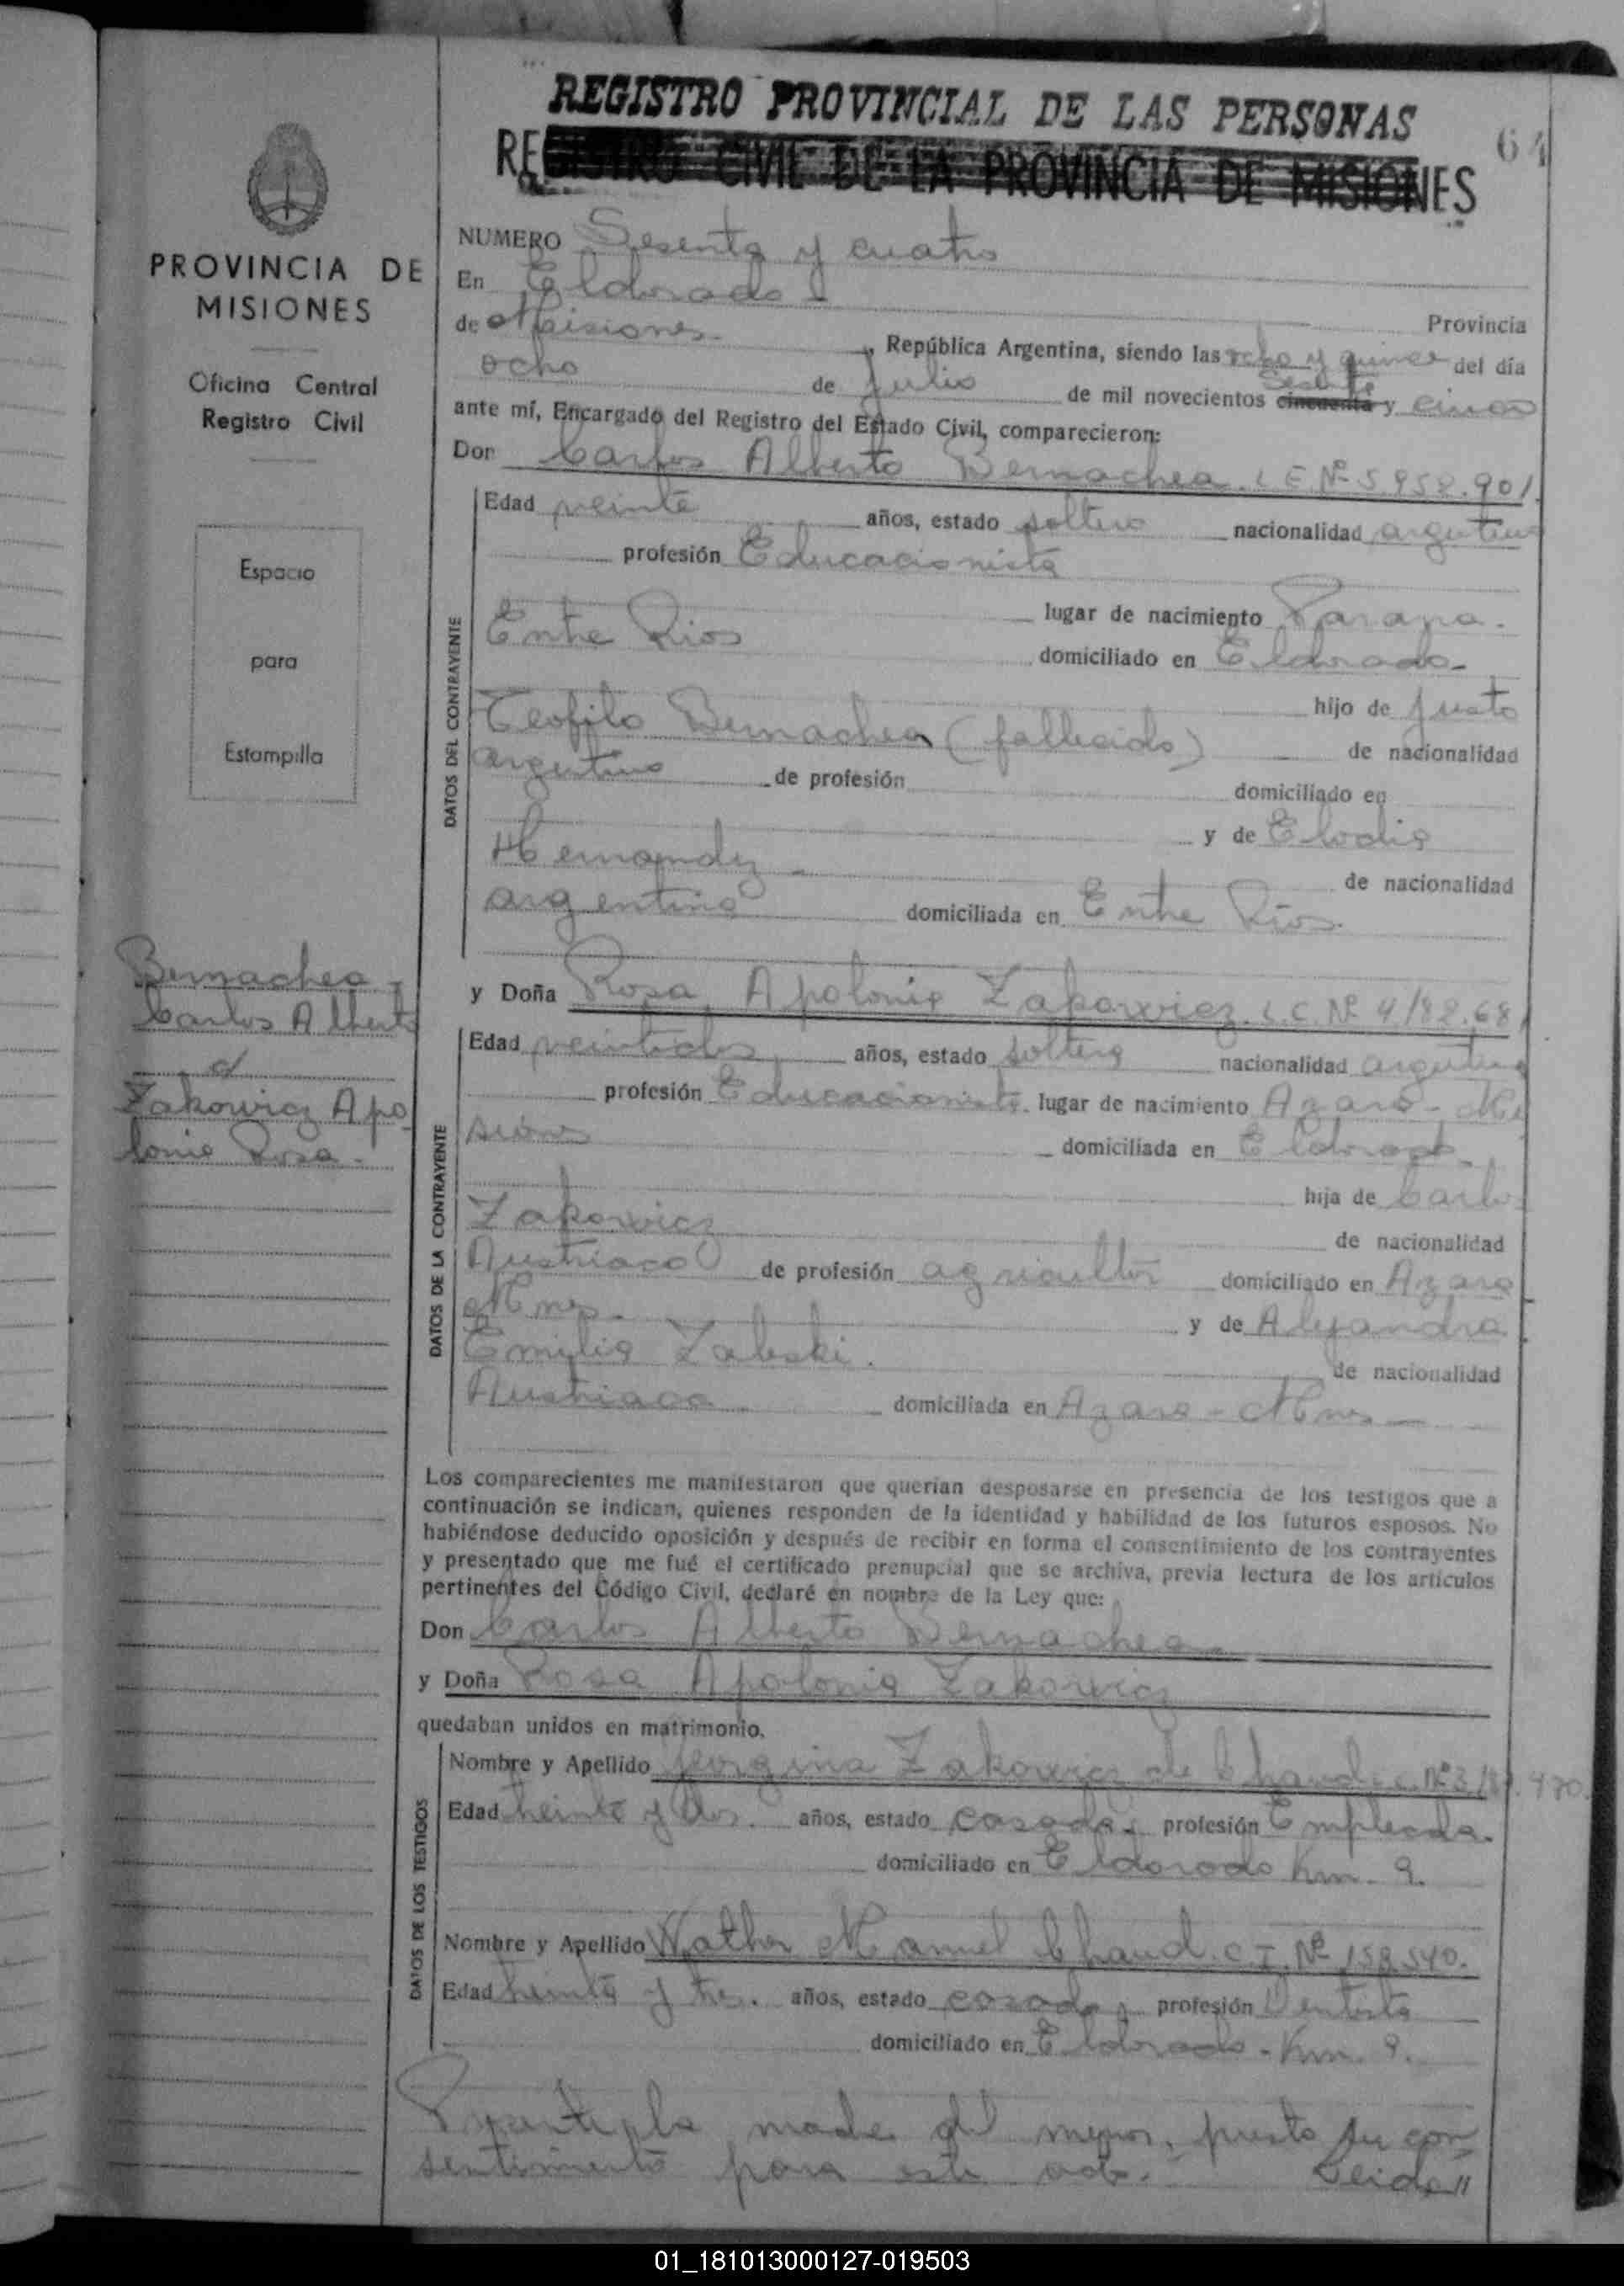 REGISTRO PROVINCIAL DE LAS PERSONAS
64
REGISTRO CIVIL DE LA PROVINCIA DE MISIONES
PROVINCIA DE
MISIONES
Oficina Central
Registro Civil
Espacio
para
Estampilla
Bernachea
Carlos Alberto
Zakowicz Apo
lonia Rosa.
NUMERO Sesenta y cuatro
En Eldorado
de Misiones Provincia
, República Argentina, siendo las ocho y quince del día
ocho de Julio de mil novecientos cincuenta sesenta y cinco
ante mí, Encargado del Registro del Estado Civil, comparecieron:
Don Carlos Alberto Bernachea. L.E. Nº 5.958.901.
Edad veinte años, estado soltero nacionalidad argentino
profesión Educacionista
lugar de nacimiento Parana.
Entre Rios domiciliado en Eldorado-
hijo de Justo
Teofilo Bernachea (fallecido) de nacionalidad
argentino de profesión domiciliado en
y de Elodia
Hernandez - de nacionalidad
argentina domiciliada en Entre Rios.
y Doña Rosa Apolonia Zakowicz. L.C. Nº 4/82.68
Edad veintidos años, estado soltera nacionalidad argentina
profesión Educacionista lugar de nacimiento Azara - Mi
siones domiciliada en Eldorado
hija de Carlos
Zakowicz de nacionalidad
Austriaco de profesión agricultor domiciliado en Azara
Mnes. y de Alejandra
Emilia Zaleski. de nacionalidad
Austriaca domiciliada en Azara - Mnes
DATOS DEL CONTRAYENTE
DATOS DE LA CONTRAYENTE
Los comparecientes me manifestaron que querían desposarse en presencia de los testigos que a
continuación se indican, quienes responden de la identidad y habilidad de los futuros esposos. No
habiéndose deducido oposición y después de recibir en forma el consentimiento de los contrayentes
y presentado que me fué el certificado prenupcial que se archiva, previa lectura de los artículos
pertinentes del Código Civil, declaré en nombre de la Ley que:
Don Carlos Alberto Bernachea
y Doña Rosa Apolonia Zakowicz
quedaban unidos en matrimonio.
DATOS DE LOS TESTIGOS
Nombre y Apellido Georgina Zakowicz de Chaud
Edad treinta y dos. años, estado casada, profesión Empleada.
domiciliado en Eldorado Km. 9.
Nombre y Apellido Walther Manuel Chaud. C.I. Nº 158.540.
Edad treinta y tres. años, estado casado, profesión Dentista
domiciliado en Eldorado - Km. 9.
Presente la madre del menor, presta su con
sentimiento para este acto. Leida
01_181013000127-019503